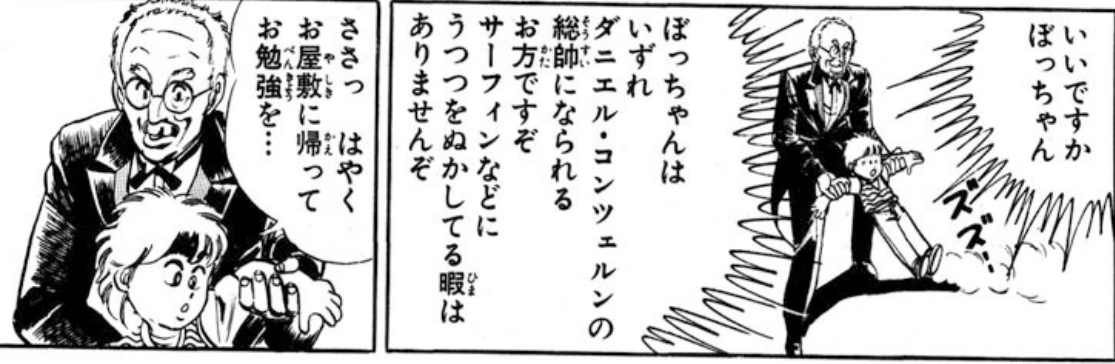 いいですか
ぼっちゃん
ズズ…
ぼっちゃんは
いずれ
ダニエル・コンツェルンの
総帥になられる
お方ですぞ
サーフィンなどに
うつつをぬかしてる暇は
ありませんぞ
ささっ はやく
お屋敷に帰って
お勉強を…